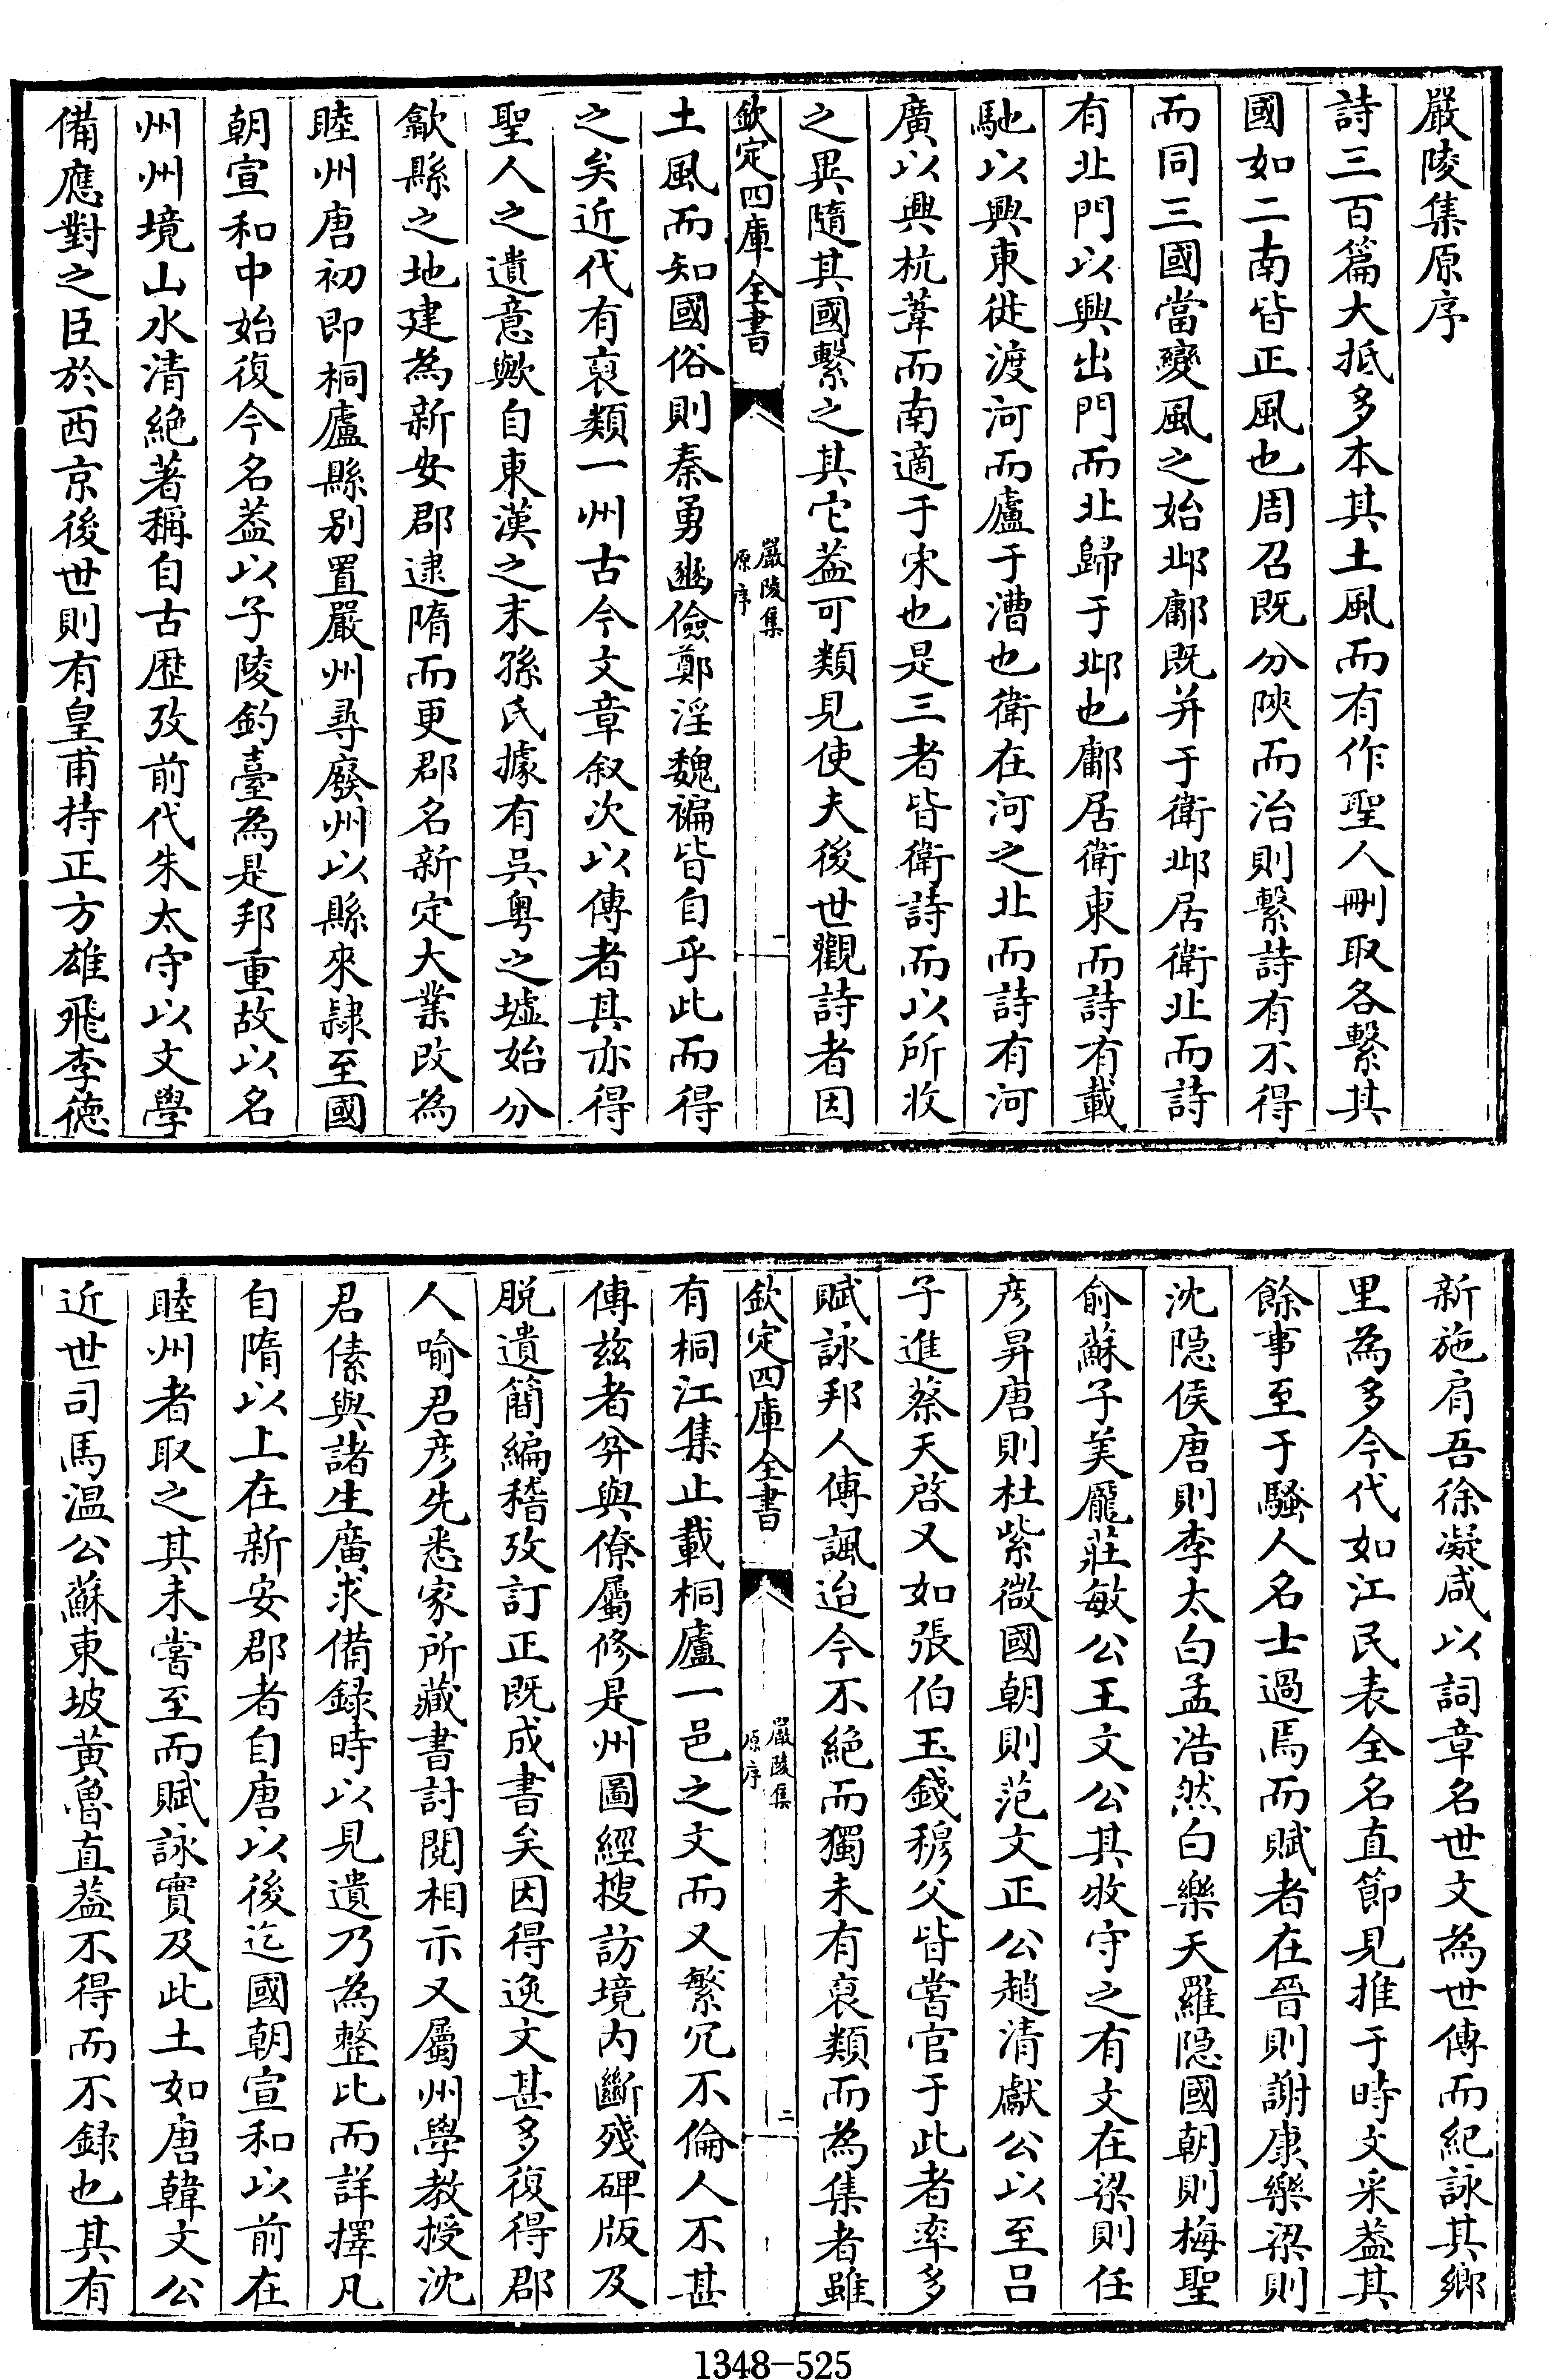 嚴陵集原序
詩三百篇大抵多本其土風而有作聖人刪取各繫其
國如二南皆正風也周召既分陜而治則繫詩有不得
而同三國當變風之始邶鄘既并于衛邶居衛北而詩
有北門以興出門而北歸于邶也鄘居衛東而詩有載
馳以興東徙渡河而廬于漕也衛在河之北而詩有河
廣以興杭葦而南適于宋也是三者皆衛詩而以所收
之異隨其國繫之其它葢可類見使夫後世觀詩者因
欽定四庫全書
嚴陵集
原序
一
土風而知國俗則秦勇豳儉鄭淫魏褊皆自乎此而得
之矣近代有裒類一州古今文章叙次以傳者其亦得
聖人之遺意歟自東漢之末孫氏據有吳粤之墟始分
歙縣之地建為新安郡逮隋而更郡名新定大業改為
睦州唐初即桐廬縣别置嚴州尋廢州以縣來隷至國
朝宣和中始復今名葢以子陵釣臺為是邦重故以名
州州境山水清絶著稱自古歴攷前代朱太守以文學
備應對之臣於西京後世則有皇甫持正方雄飛李徳
新施肩吾徐凝咸以詞章名世文為世傳而紀詠其鄉
里為多今代如江民表全名直節見推于時文采葢其
餘事至于騷人名士過焉而賦者在晉則謝康樂梁則
沈隠侯唐則李太白孟浩然白樂天羅隠國朝則梅聖
俞蘇子美龐莊敏公王文公其收守之有文在梁則任
彦昇唐則杜紫微國朝則范文正公趙清獻公以至呂
子進蔡天啓又如張伯玉錢穆父皆嘗官于此者率多
賦詠邦人傳諷迨今不絶而獨未有裒類而為集者雖
欽定四庫全書
嚴陵集
原序
二
有桐江集止載桐廬一邑之文而又繁冗不倫人不甚
傳兹者弁與僚屬修是州圖經搜訪境内斷殘碑版及
脱遺簡編稽攷訂正既成書矣因得逸文甚多復得郡
人喻君彦先悉家所藏書討閱相示又屬州學教授沈
君傃與諸生廣求備録時以見遺乃為整比而詳擇凡
自隋以上在新安郡者自唐以後迄國朝宣和以前在
睦州者取之其未嘗至而賦詠實及此土如唐韓文公
近世司馬温公蘇東坡黄魯直葢不得而不録也其有
1348-525